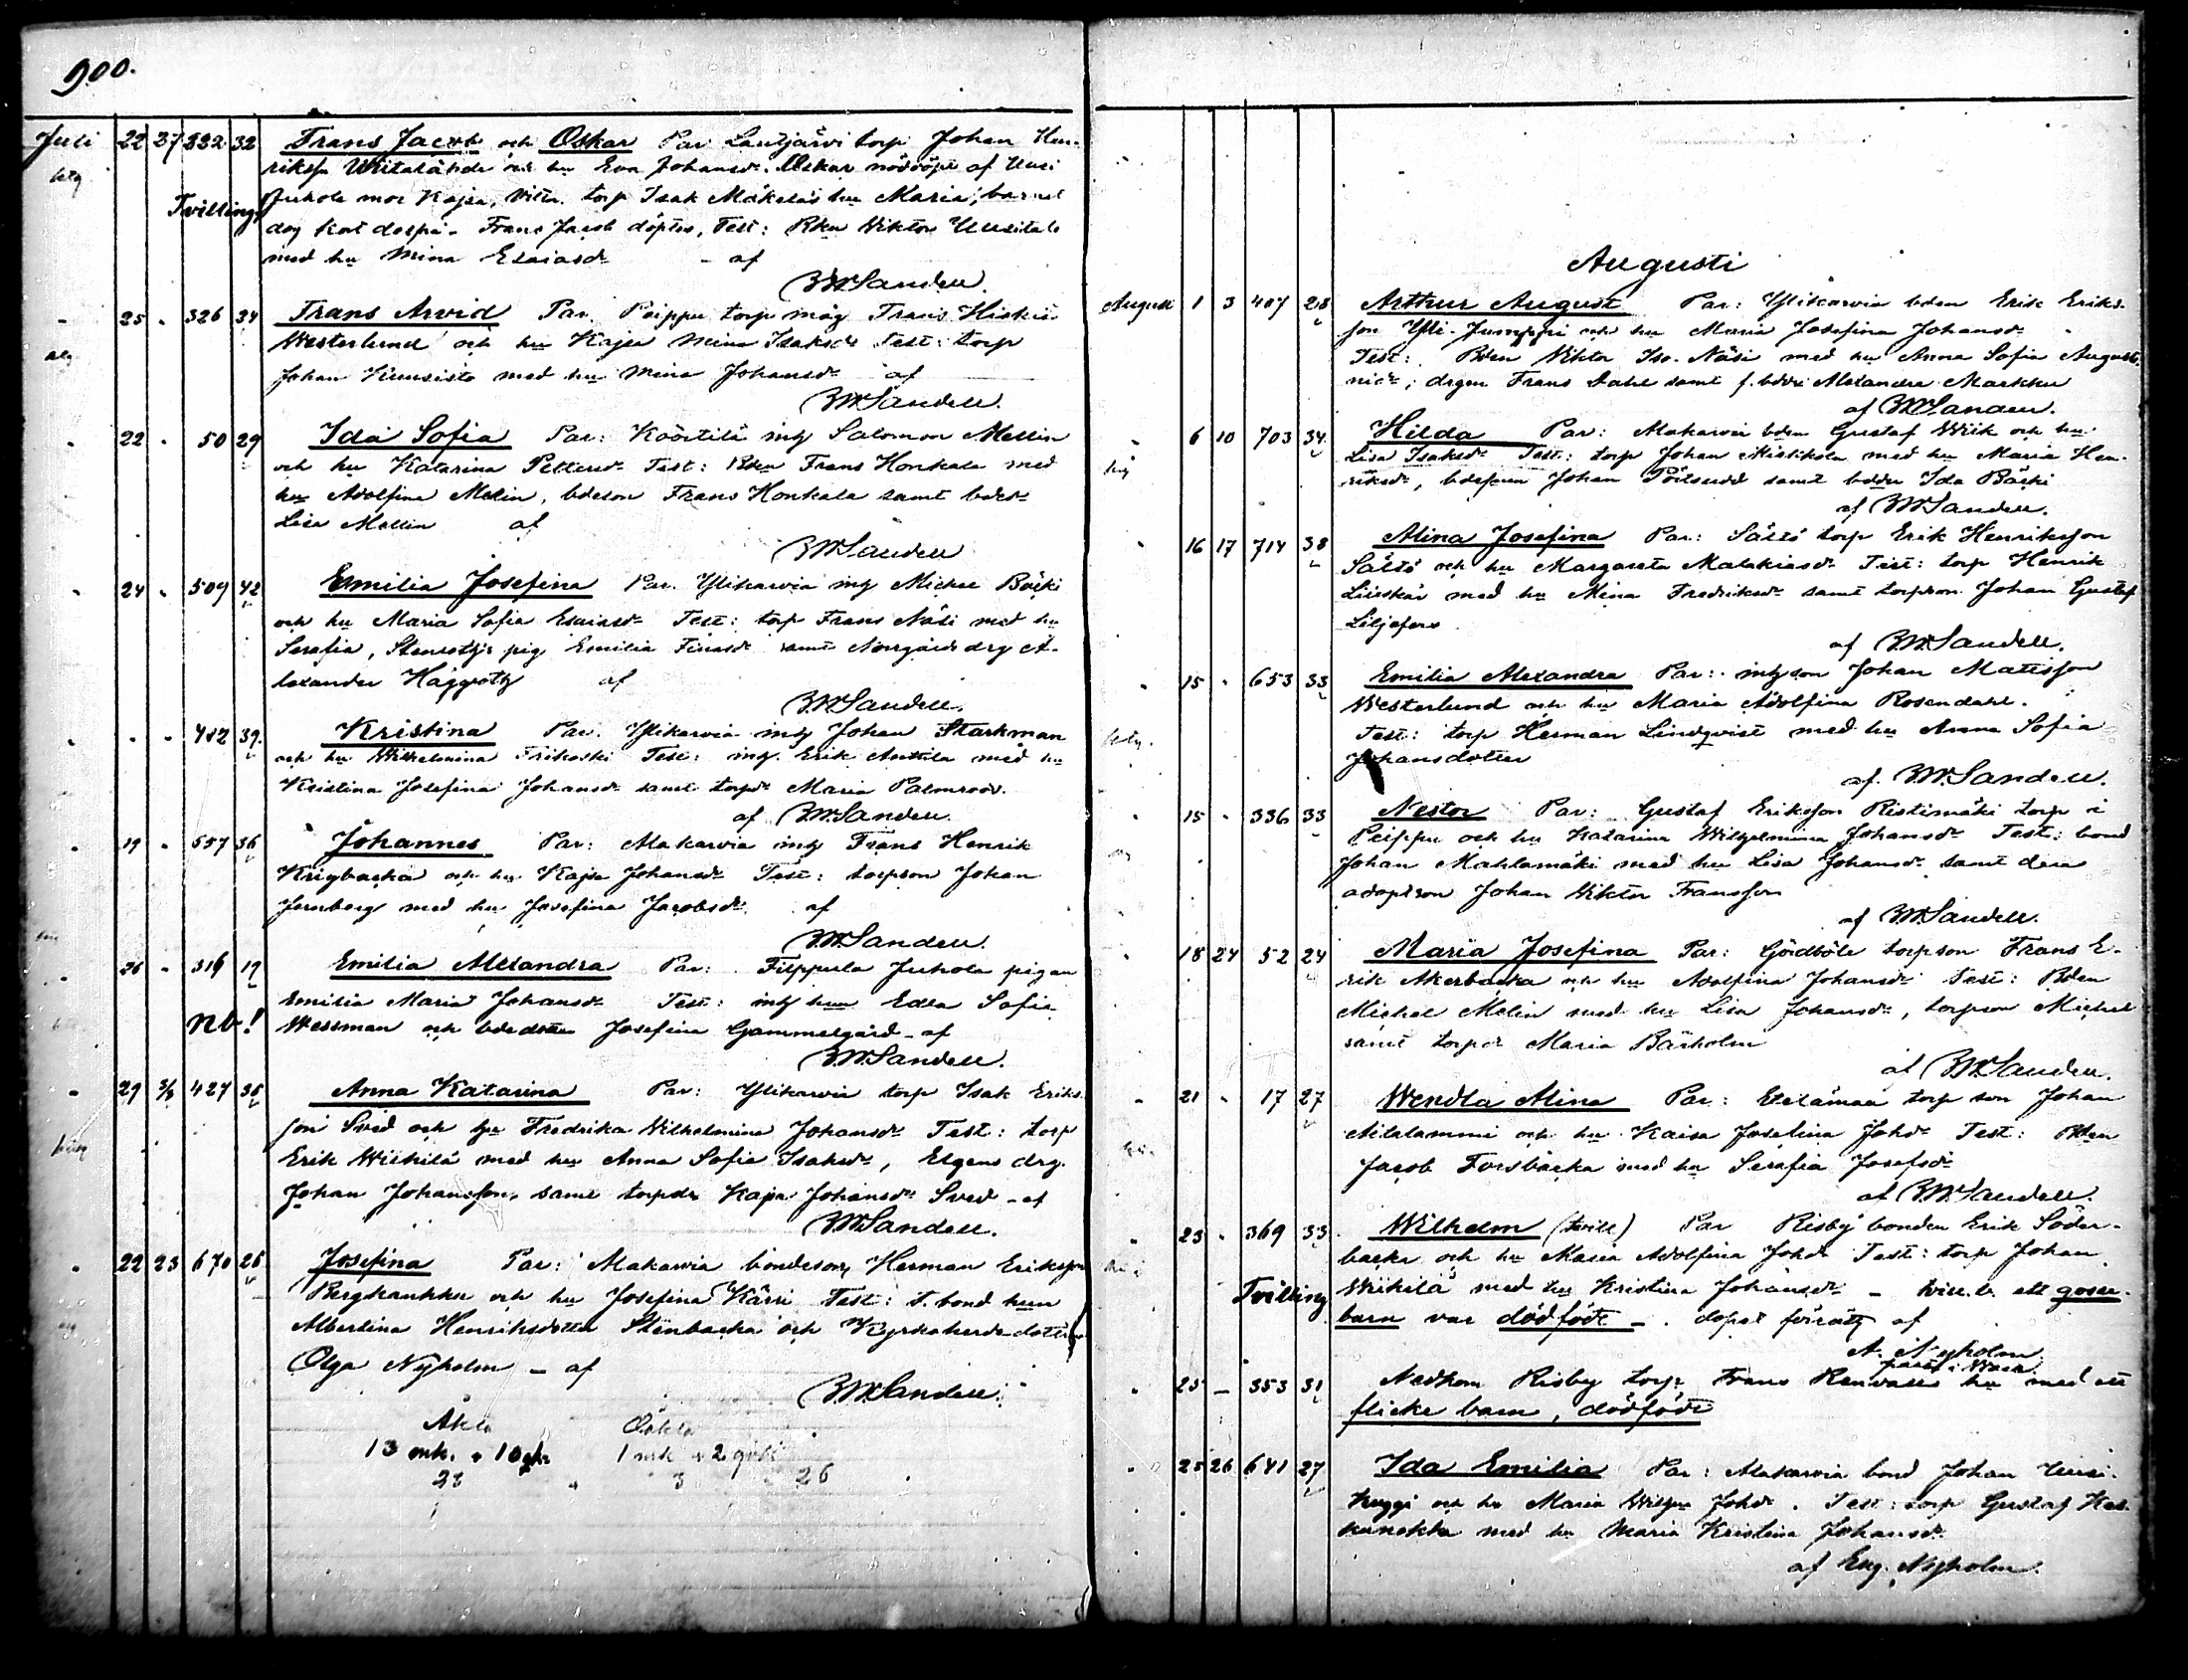 900.
Juli 22 27 322 32 Frans Jacob och Oskar Par Lautjärvi torp Johan Hen-
riksson och hu Eva Johansdr. Oskar nöddöpt af Uusi
Tvilling Juhola mor Kajsa, torp Isak Mäkeläs hu Maria; barnet
dog kort derpå. Frans Jacob döptes, Test: Bden Wiktor Uusitalo
med hu Mina Esaiasdr af
Sandell.
25 " 326 34 Frans Arvid Par. Peippu torp måg Frans Hiskia
Westerlund och hu Kajsa Mina Isaksdr Test: torp
Johan Kuusisto med hu Mina Johansdr af
Sandell.
22 " 50 29 Ida Sofia Par: Köörtilä inhy Salomon Mellin
och hu Katarina Pettersdr Test: Bden Frans Honkala med
hu Adolfina Melin, bdeson Frans Honkala samt bdedr
Lisa Mellin af
Sandell
24 " 509 42 Emilia Josefina Par. Yllikarvia inhy Michel Bäcki
och hu Maria Sofia Esaiasdr Test: torp Frans Näsi med hu
Serafia, pig Emilia samt Norrgårds drg A-
lexander Häggroth af
Sandell.
" " 39 Kristina Par. Yllikarvia inhy Johan Starkman
och hu Wilhelmina Test: inhy. Erik Anttila med hu
Kristina Josefina Johansdr samt torpdr Maria Palmroos.
af Sandell.
19 " 557 36 Johannes Par: Makarvia inhy Frans Henrik
Krigbacka och hu Kajsa Johansdr Test: torpson Johan
Jernberg med hu Josefina Jacobsdr. af
Sandell.
26 " 316 19 Emilia Alexandra Par: Filppula Juhola pigan
Emilia Maria Johansdr Test: inhy hun Edla Sofia
nb! Wessman och bdedottr Josefina Gammelgård - af
Sandell.
29 3/8 427 35 Anna Katarina Par: Yllikarvia torp Isak Eriks-
son Sved och hu Fredrika Wilhelmina Johansdr Test: torp
Erik Wiikilä med hu Anna Sofia Isaksdr, Elgens drg.
Johan Johansson, samt torpdr Kajsa Johansdr Sved - af
Sandell.
22 23 670 26 Josefina Par: Makarvia bondeson Herman Eriksson
Bergkaukku och hu Josefina Kärri Test: t. bond hun
Albertina Henriksdotter Stenbacka och Kyrkoherde dotter
Olga Nyholm - af
Sandell.
Äkta Oäkta
13 mk. + 10 qk 1 mk + 2 qvk
23 + 3 26
Augusti
August 1 3 407 28 Arthur August Par: Yllikarvia bden Erik Eriks-
son Yli-Jumppi och hu Maria Josefina Johansdr
Test: Bden Wiktor Iso-Näsi med hu Anna Sofia August-
; drgen Frans Dahl samt Alexandra Markku
af Sandell.
6 10 703 34 Hilda Par: Makarvia bden Gustaf Wiik och hu
Lisa Isaksdr Test: torp Johan med hu Maria Hen-
riksdr, Johan samt bddr Ida Bäcki
af Sandell.
16 17 714 38 Alina Josefina Par: Sältö torp Erik Henriksson
Sältö och hu Margareta Malakiasdr Test: torp Henrik
med hu Mina Fredriksdr samt torpson Johan Gustaf
Liljefors
af Sandell.
15 " 653 33 Emilia Alexandra Par: inhyson Johan Matisson
Westerlund och hu Maria Adolfina Rosendahl.
Test: torp Herman Lindqvist med hu Anna Sofia
Johansdotter
af. Sandell.
15 " 336 33 Nestor Par: Gustaf Eriksson Ristimäki torp i
Peippu och hu Katarina Wilhelmina Johansdr Test: bond
Johan Mahlamäki med hu Lisa Johansdr samt dera
adoptson Johan Wiktor Fransson
af Sandell.
18 24 52 24 Maria Josefina Par: Gördböle torpson Frans E-
rik Åkerbacka och hu Adolfina Johansdr Test: Bden
Michel Melin med hu Lisa Johansdr, torpson Michel
samt torpdr Maria Bärholm
af Sandell.
21 " 17 27 Wendla Alina Par: Etelämaa torp son Johan
Niitulammi och hu Kaisa Josefina Johdr Test: Bden
Jacob Forsbacka med hu Serafia Josefsdr
af Sandell.
23 " 369 33 Wilhelm (tvill) Par Risby bonden Erik Söder-
backa och hu Maria Adolfina Johdr Test: torp Johan
Tvilling Wiikilä med hu Kristina Johansdr - tvill. b. ett gosse-
barn var dödfödt - dopet förrätt af
A. Nyholm
25 - 353 31 Nedkom Risby torp Frans Renvalls hu med ett
flicke barn, dödfödt
25 26 641 27 Ida Emilia Par: Makarvia bond Johan Uusi-
kuggi och hu Maria Johdr. Test: torp Gustaf
med hu Maria Kristina Johansdr
af Eug. Nyholm.